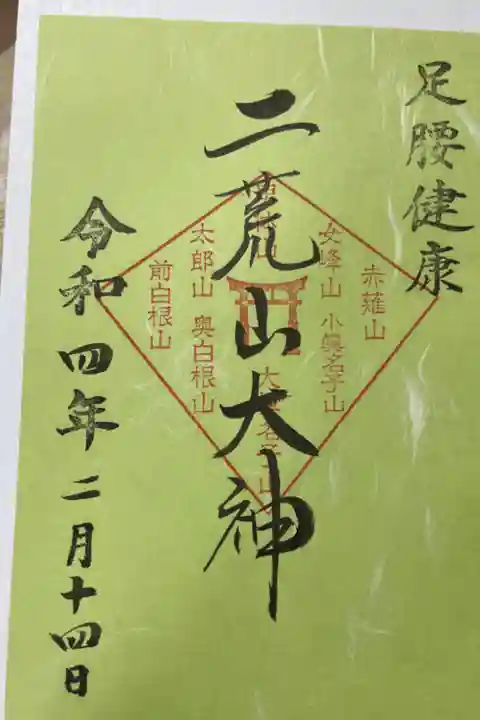 足腰健康
二荒山大神
赤薙山
女峰山 小真名子山
太郎山 奥白根山
前白根山
令和四年二月十四日